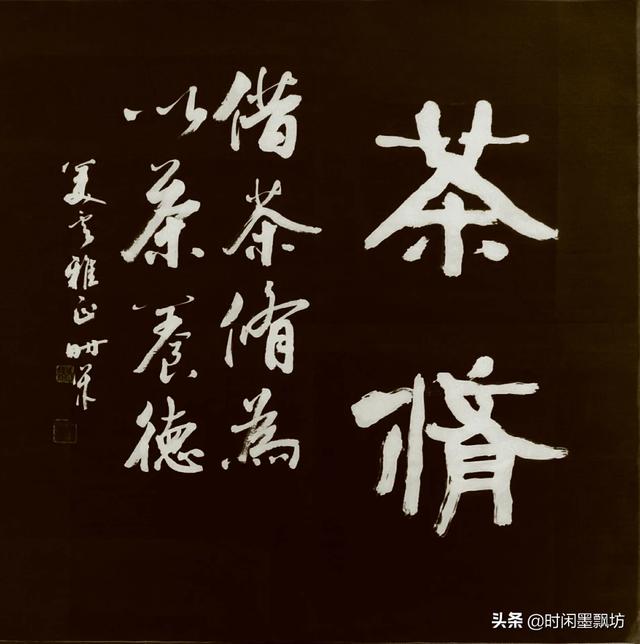 茶脩
借茶脩為
以茶養德
美云雅正
头条 @时闲墨飘坊